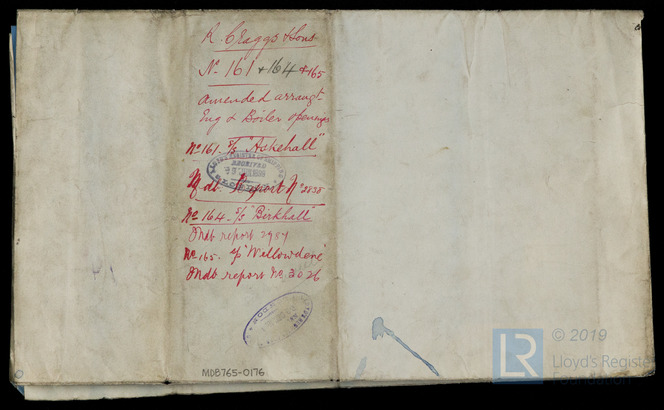 R. Craggs & Sons
No 161 & 164 & 165
Amended arrangt
Eng & Boiler openings
No 161. S/S "Askehall"
RECEIVED
Mdb. Report No 2838
No 164. S/S "Birkhall"
Mdb report 2987
No 165. S/S "Willowdene"
Mdb report No. 3026
MDB765-0176
LR
© 2019
Lloyd's Register
Foundation